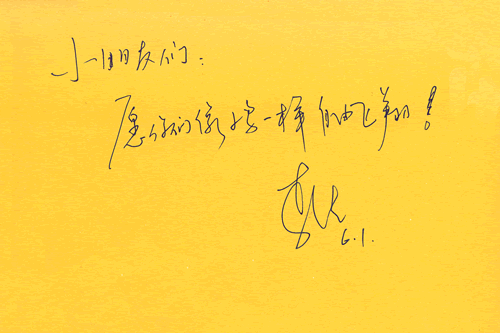 小朋友们：
愿你们像小鸟一样自由飞翔！
6.1.